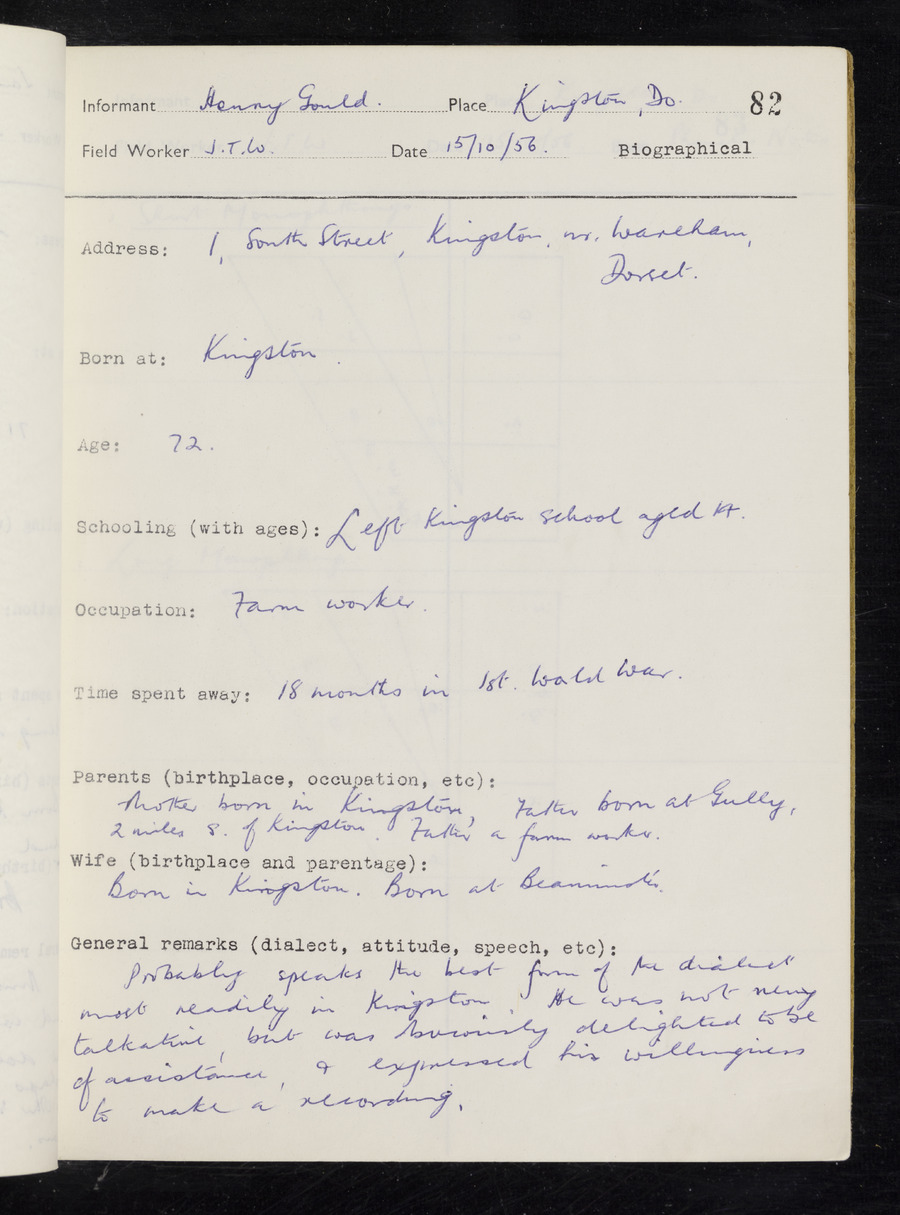 Informant Henry Gould. Place Kingston, Do. 82
Field Worker J.T.W. Date 15/10/56. Biographical
Address: 1, South Street, Kingston, nr. Wareham,
Dorset.
Born at: Kingston.
Age: 72.
Schooling (with ages): Left Kingston school aged 14.
Occupation: Farm worker.
Time spent away: 18 months in 1st. World War.
Parents (birthplace, occupation, etc):
Mother born in Kingston, Father born at Gully,
2 miles S. of Kingston. Father a farm worker.
Wife (birthplace and parentage):
Born in Kingston. Born at Beaminster.
General remarks (dialect, attitude, speech, etc):
Probably speaks the best form of the dialect
most readily in Kingston. He was not very
talkative, but was obviously delighted to be
of assistance, & expressed his willingness
to make a recording.